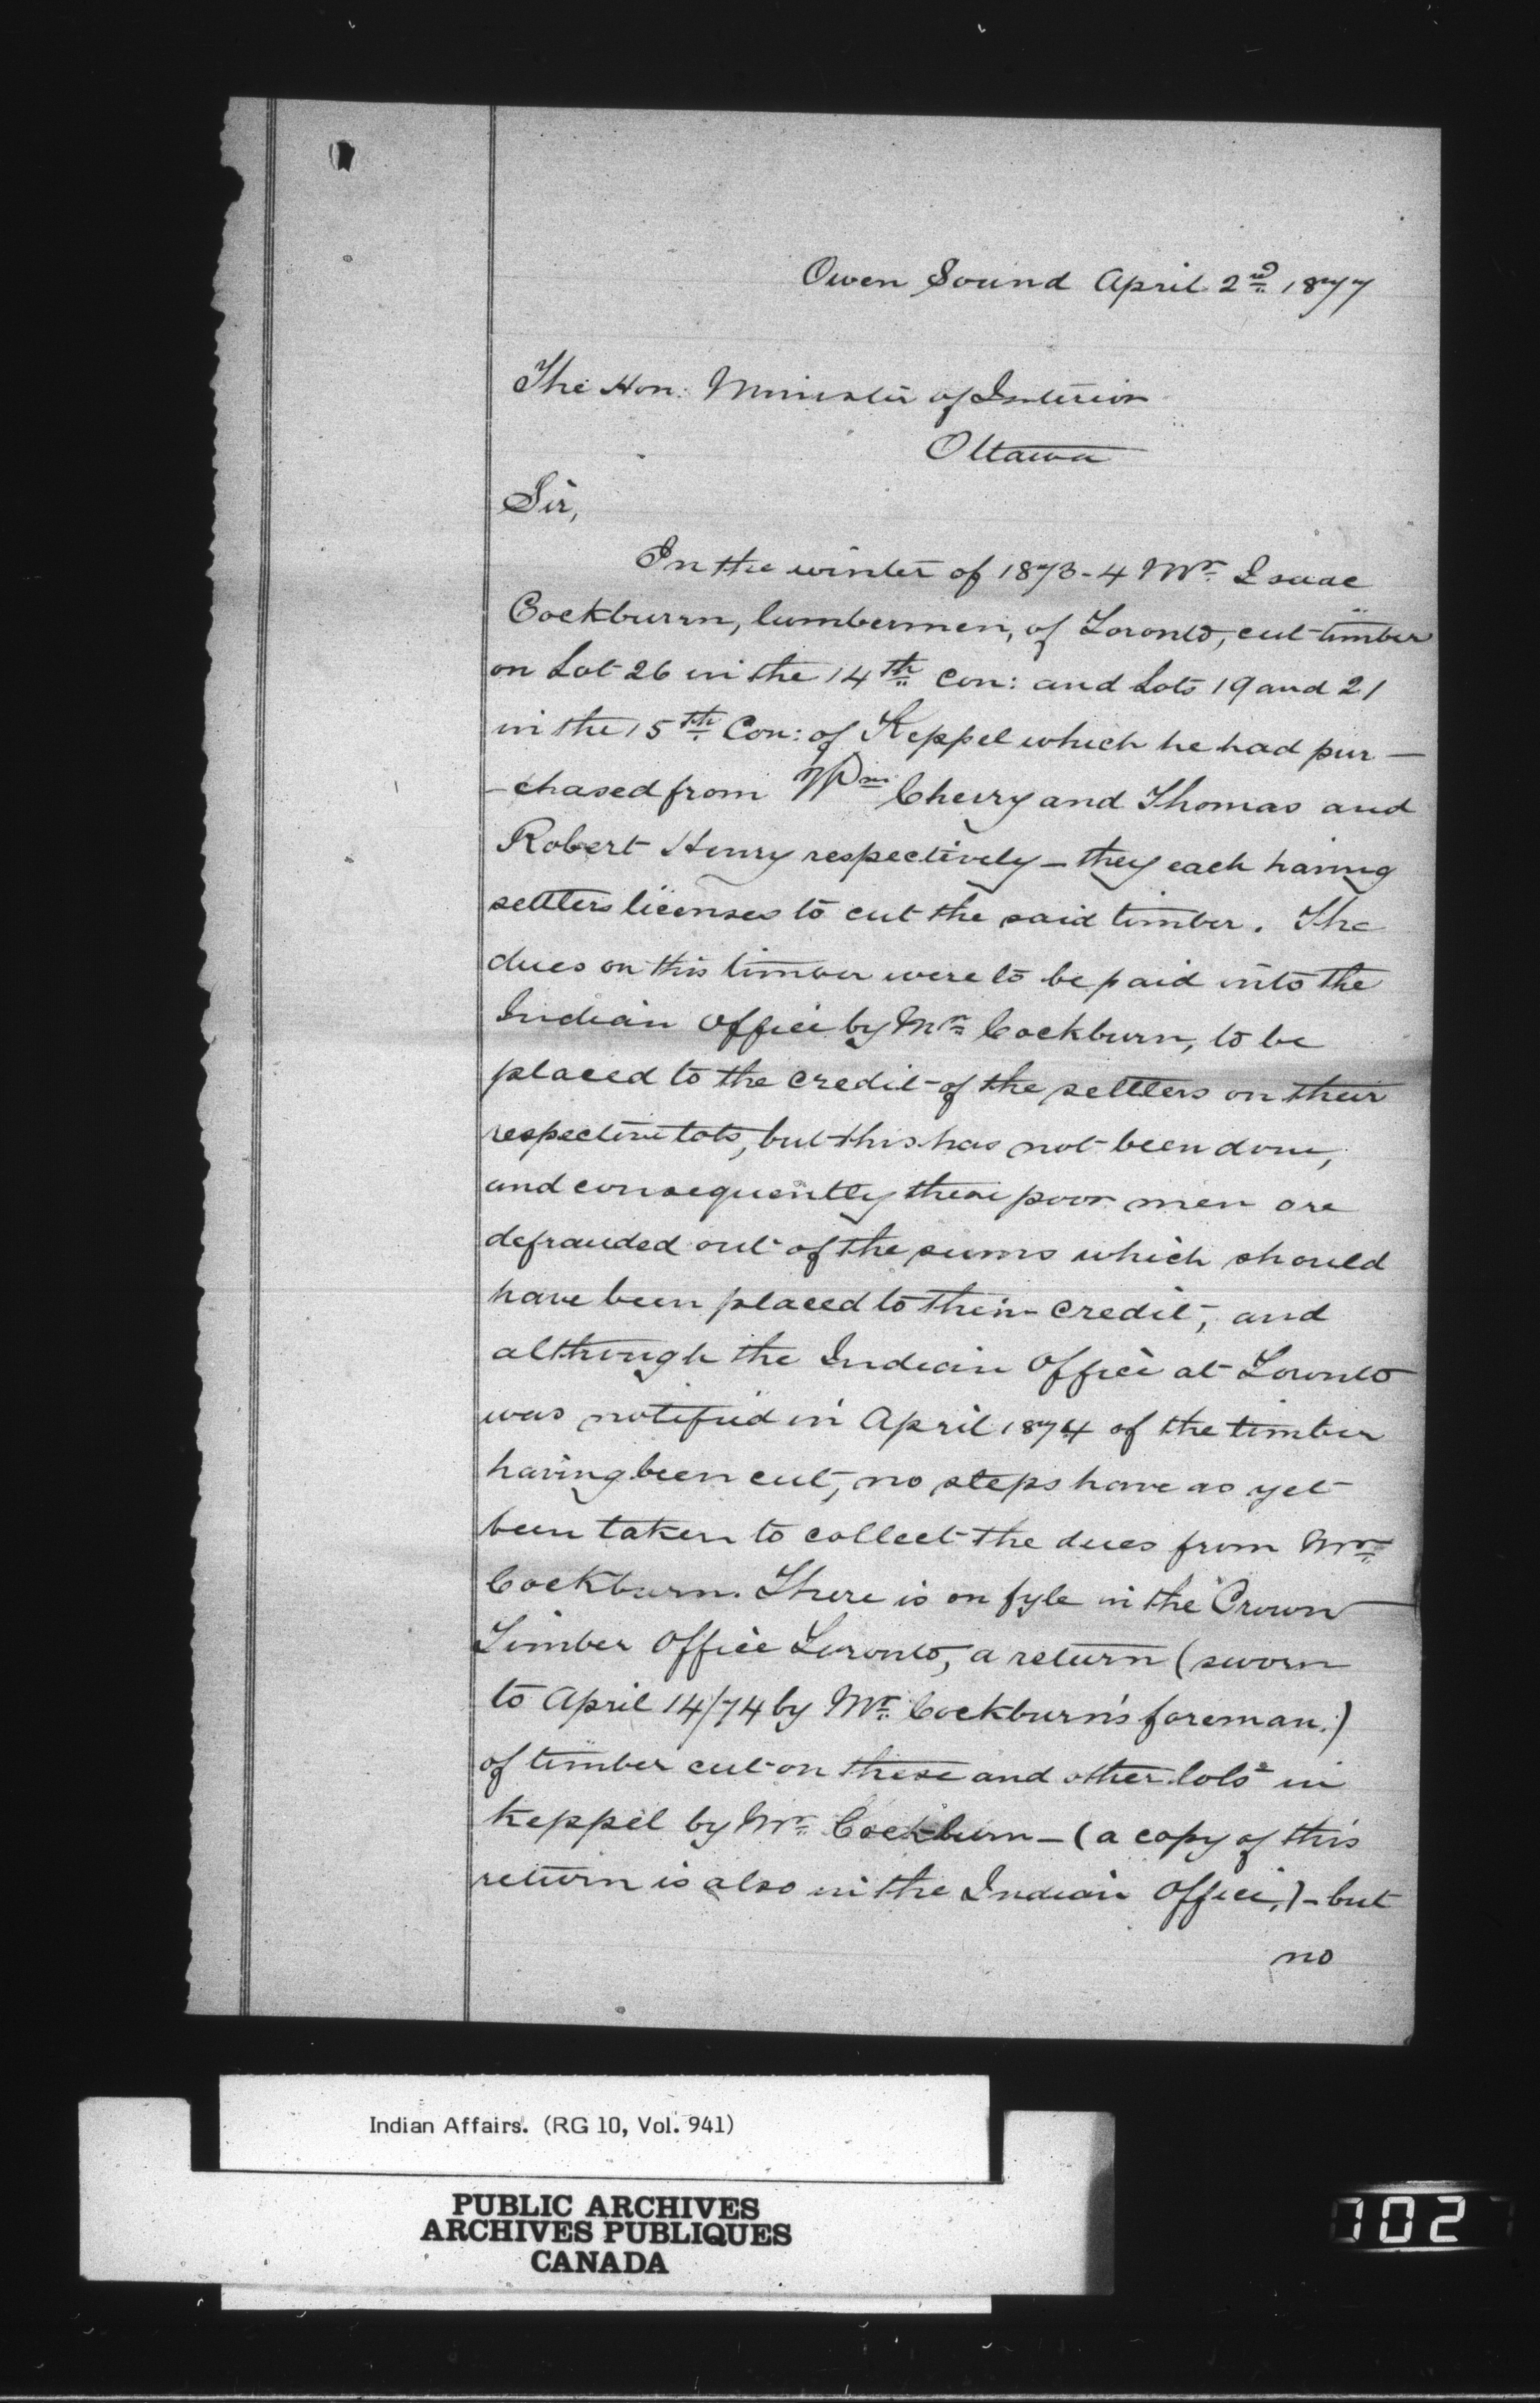 Owen Sound April 2nd 1877
The Hon: Minister of Interior
Ottawa
Sir,
In the winter of 1873-4 Mr. Isaac
Cockburrn, lumbermen, of Toronto, cut timber
on Lot 26 in the 14th Con: and Lots 19 and 21
in the 15th Con: of Keppel which he had pur-
-chased from Wm Cherry and Thomas and
Robert Henry respectively - they each having
settlers licenses to cut the said timber. The
dues on this timber were to be paid into the
Indian Office by Mr. Cockburn, to be
placed to the credit of the settlers on their
respective lots, but this has not been done,
and consequently these poor men are
defrauded out of the sums which should
have been placed to their credit, and
although the Indian Office at Toronto
was notified in April 1874 of the timber
having been cut, no steps have as yet
been taken to collect the dues from Mr.
Cockburn. There is on fyle in the Crown
Timber Office Toronto, a return (sworn
to April 14/74 by Mr. Cockburn's foreman.)
of timber cut on these and other lots in
Keppel by Mr. Cockburn - (a copy of this
return is also in the Indian Office,) - but
no
Indian Affairs. (RG 10, Vol. 941)
PUBLIC ARCHIVES
ARCHIVES PUBLIQUES
CANADA
702